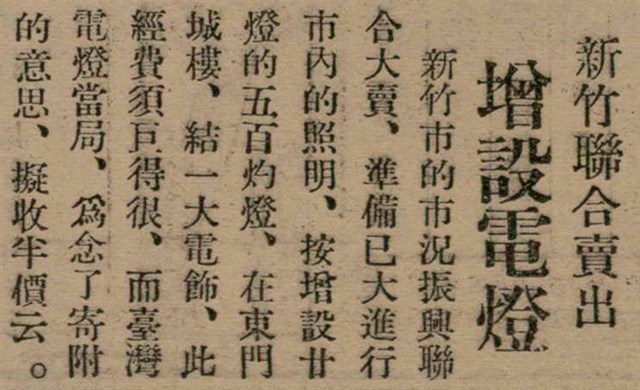 新竹聯合賣出
增設電燈
新竹市的市況振興聯
合大賣、準備已大進行
市內的照明、按增設廿
燈的五百灼燈、在東門
城樓、結一大電飾、此
經費須巨得很、而臺灣
電燈當局、爲念了寄附
的意思、擬收半價云。